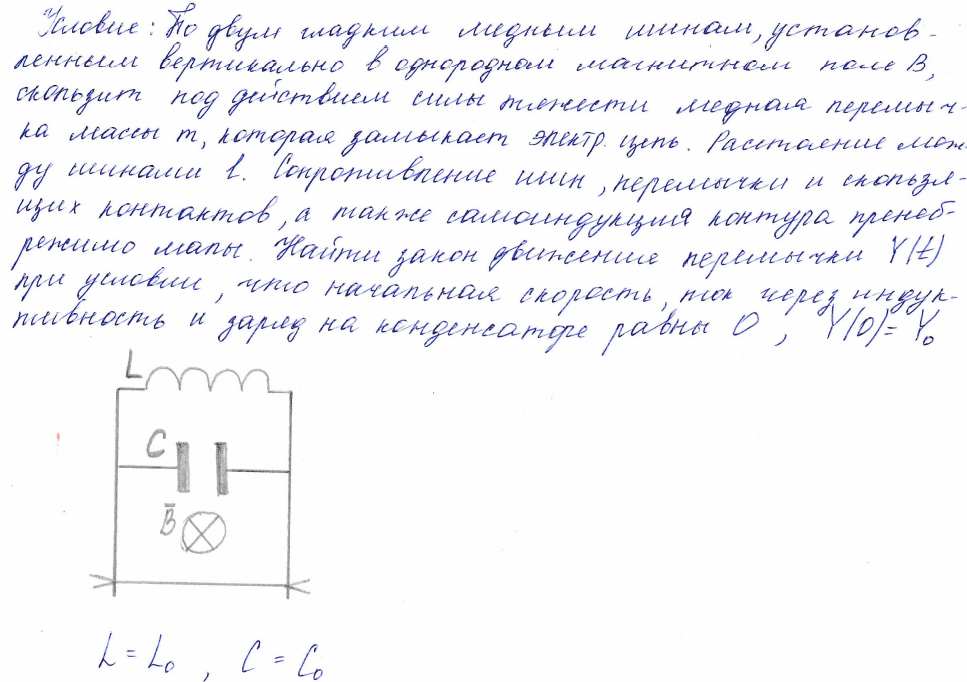 Условие: По двум гладким медным шинам, установ-
ленным вертикально в однородном магнитном поле B,
скользит под действием силы тяжести медная перемыч-
ка массы m, которая замыкает электр. цепь. Расстояние меж-
ду шинами l. Сопротивление шин, перемычки и скользя-
щих контактов, а также самоиндукция контура пренеб-
режимо малы. Найти закон движения перемычки Y(t)
при условии, что начальная скорость, ток через индук-
тивность и заряд на конденсаторе равны 0, Y(0)= Y₀
L
C
B̅
L = L₀, C = C₀